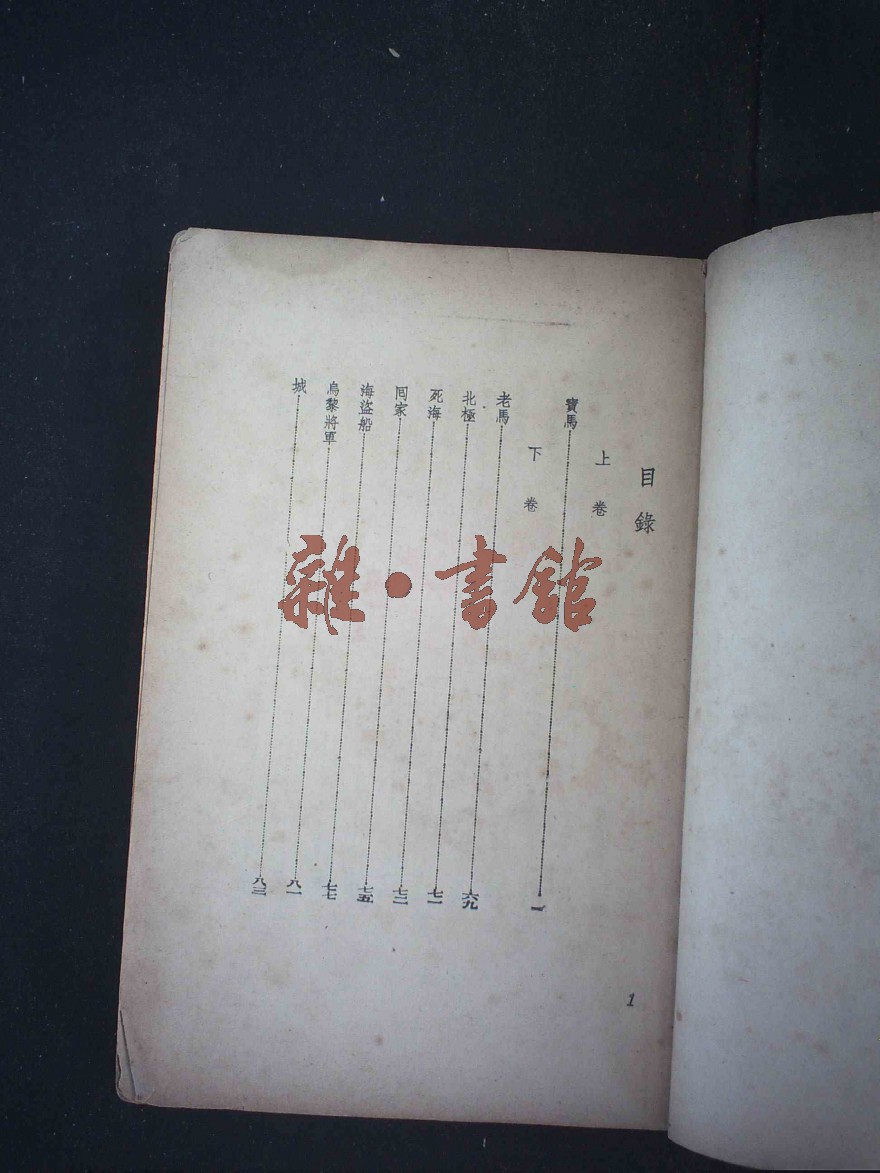 目錄
上卷
寶馬……一
下卷
老馬……六九
北極……七一
死海……七三
囘家……七五
海盜船……七七
烏黎將軍……八一
城……八三
1
雜·書館